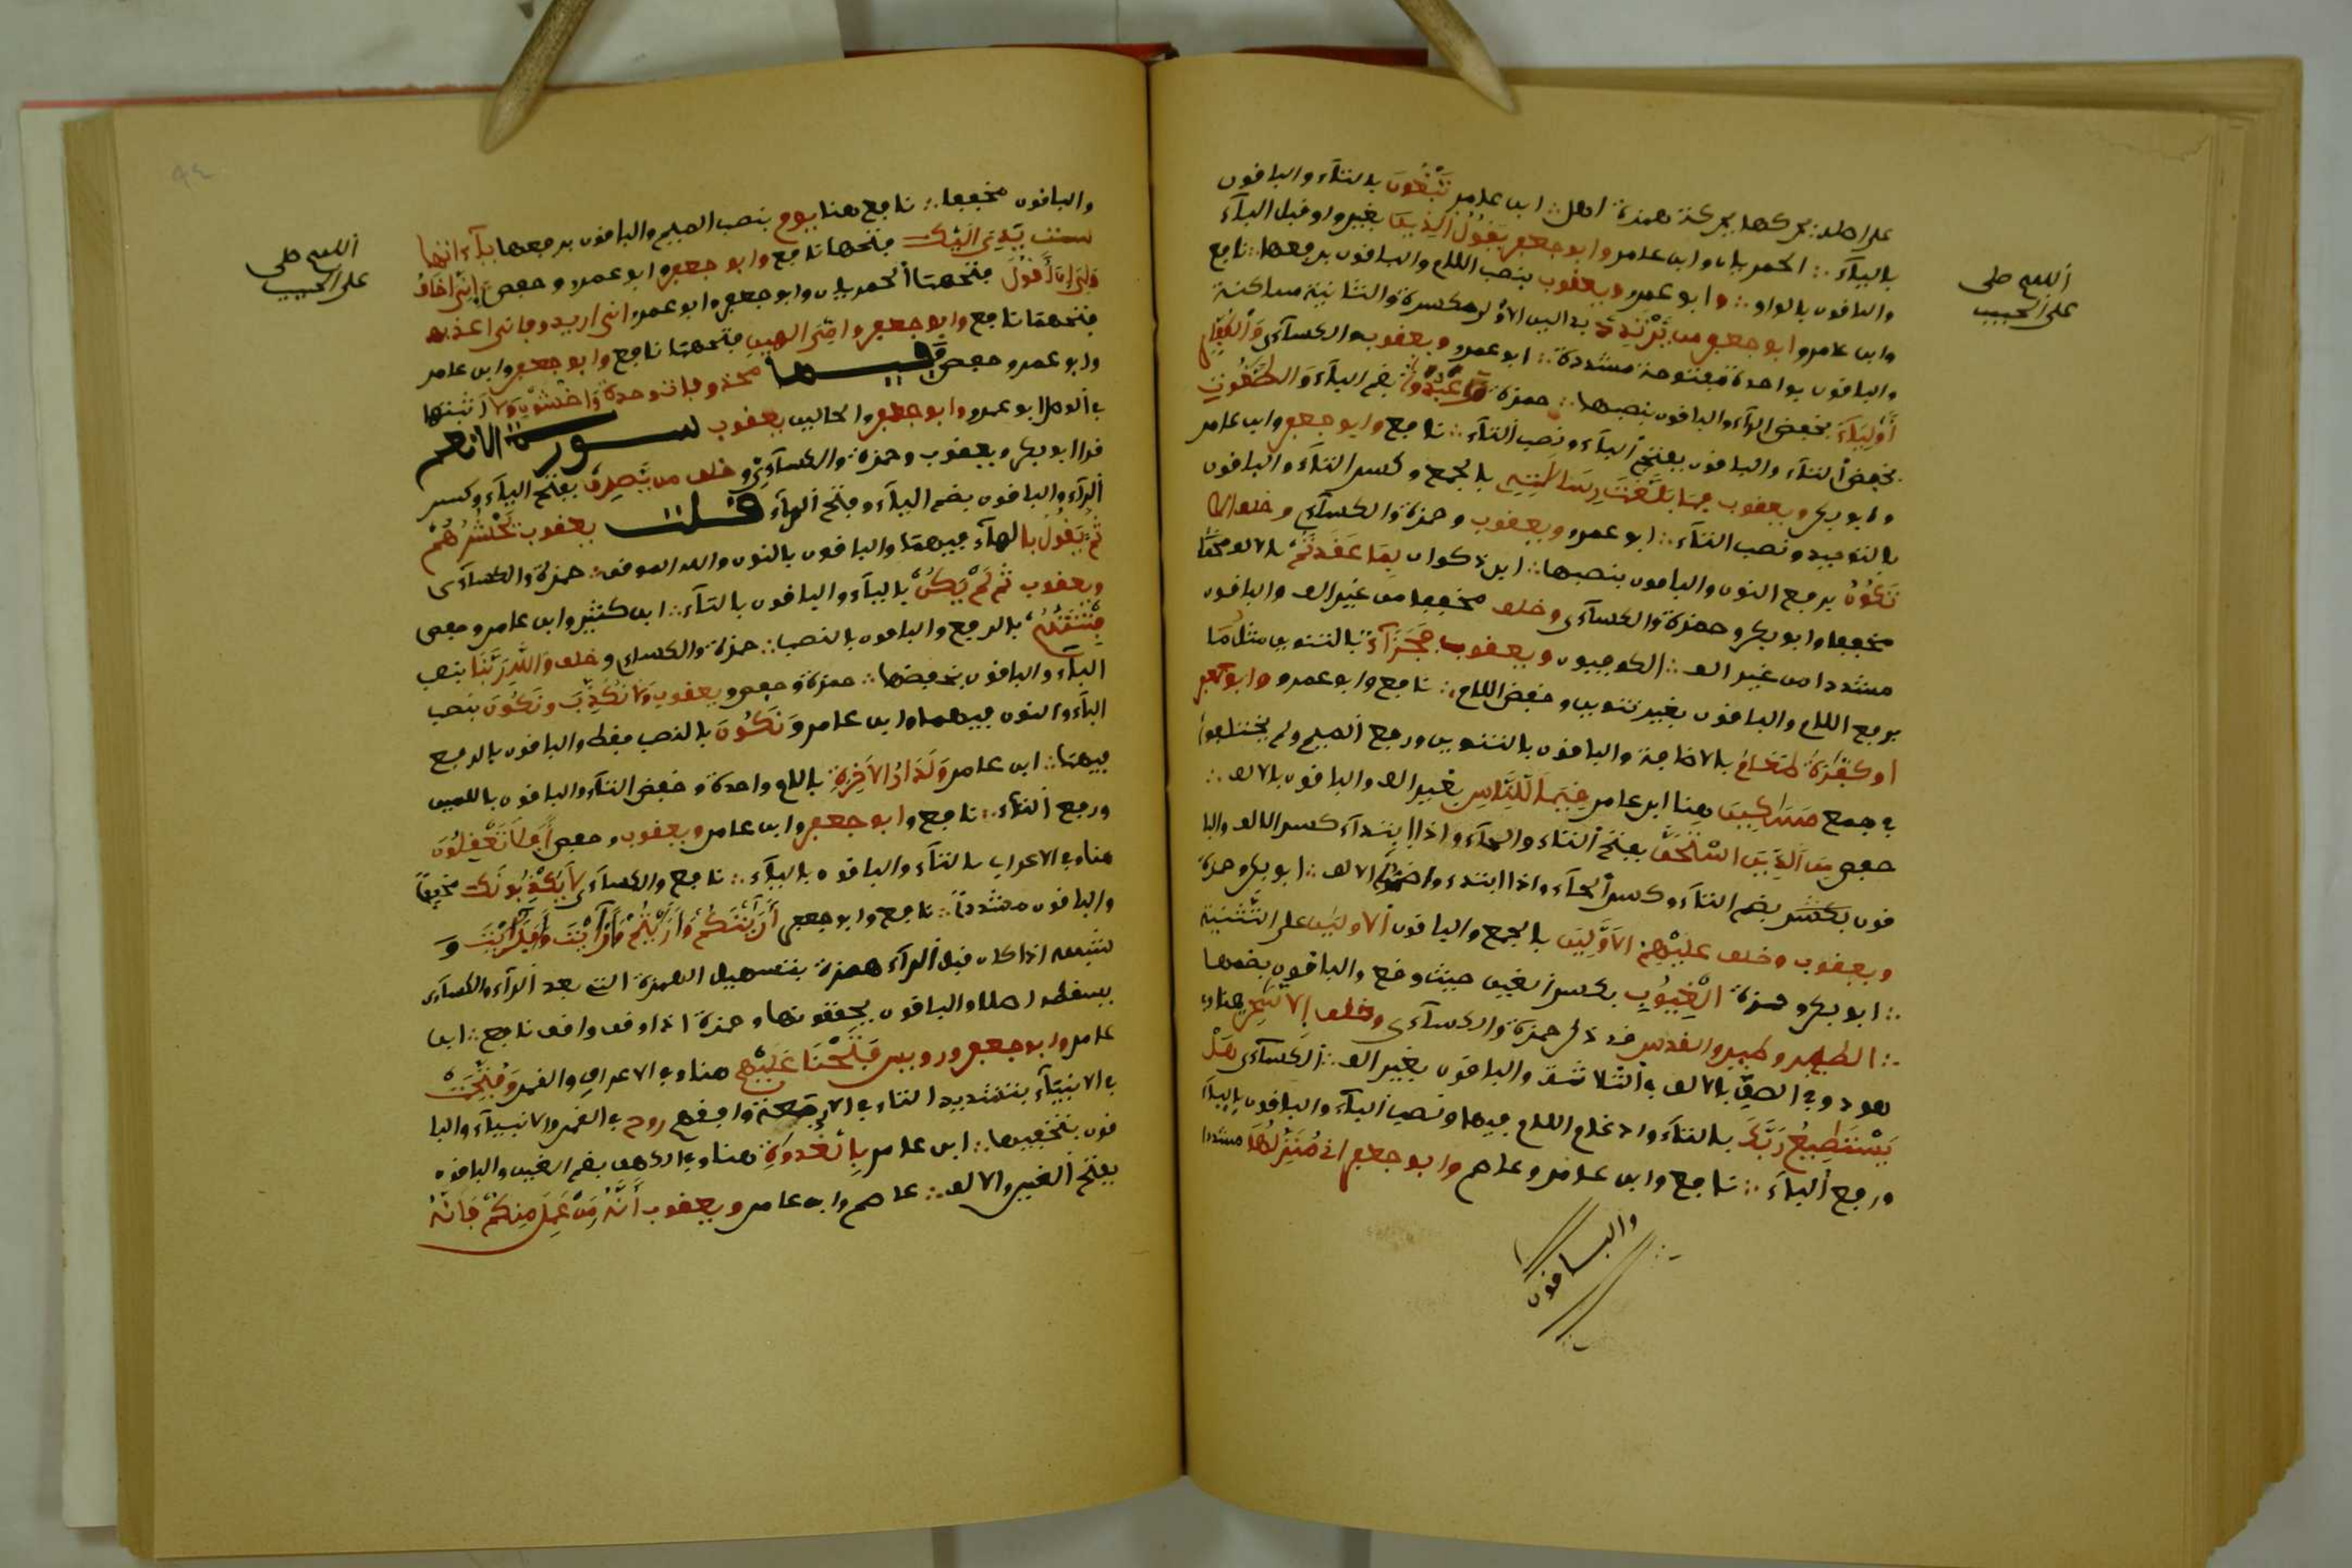 على اصله يحركها بحركة همزة اهل :: ابن عامر تَبْغُونَ بالتاء والباقون
بالياء :: الحرميان وابن عامر وابو جعفر يَقُولُ الذِينَ بغير واو قبل الياء
والباقون بالواو :: وابو عمرو ويعقوب بنصب اللام والباقون برفعها :: نافع
وابن عامر وابو جعفر من يَرْتَدِدْ بدالين الأولى مكسورة والثانية ساكنة
والباقون بواحدة مفتوحة مشددة :: ابو عمرو ويعقوب والكسآئي وَالْكُفِّارِ
أَوْلِيَآءَ بخفض الرآء والباقون بنصبها :: حمزة وَعَبُدَ بضم البآء وَالطَّـٰغُوتِ
بخفض التآء والباقون بفتح البآء ونصب التآء :: نافع وابو جعفر وابن عامر
وابو بكر ويعقوب فما بَلَّغْتَ رِسَالَـٰتِهِ بالجمع وكسر التآء والباقون
بالتوحيد ونصب التآء :: ابو عمرو ويعقوب وحمزة والكسآئي وخلف الا
تَكُونُ برفع النون والباقون بنصبها :: ابن ذكوان بِمَا عَـٰقَدتُّمُ بالالف مخففا
مخففا وابو بكر وحمزة والكسآئي وخلف مخففا من غير الف والباقون
مشددا من غير الف :: الكوفيون ويعقوب فَجَزَآءٌ بالتنوين مثلُ مَا
برفع اللام والباقون بغير تنوين وخفض اللام :: نافع وابن عامر وابو جعفر
او كفّـٰرةُ طعامِ بالاضافة والباقون بالتنوين ورفع الميم ولم يختلفوا
في جمع مَسَـٰكِينَ هنا ابن عامر قِيَماً لِّلنَّاسِ بغير الف والباقون بالالف ::
حفص مِنَ الذِينَ اسْتَحَقَّ بفتح التاء والحآء واذا ابتدأ كسر الالف والبا
قون بضم التآء وكسر الحآء واذا ابتدءوا ضموا الالف :: ابو بكر وحمزة
ويعقوب وخلف عَلَيْهِمُ الاَوَّلِينَ بالجمع والباقون الأوليـٰن على التثنية
:: ابو بكر وحمزة الْغِيُوبِ بكسر الغين حيث وقع والباقون بضمها
:: الطيـٰر وطير والقدس قد ذكر حمزة والكسآئي وخلف إلا سـٰحر هنا وفي
هود وفي الصف بالالف في الثلاثة والباقون بغير الف :: الكسآئي هَلْ
تَسْتَطِيعُ رَبَّكَ بالتآء وادغام اللام فيها ونصب البآء والباقون باليآء
ورفع البآء :: نافع وابن عامر وعاصم وابو جعفر انى مُنَزِّلُهَا مشددا
والباقون
اللهم صل
على الحبيب
والباقون مخففا :: نافع هنا يومَ بنصب الميم والباقون برفعها يآءاتها
ست يَدِيَ إِلَيْكَ فتحها نافع وابو جعفر وابو عمرو وحفص إِنِّيَ أَخَافُ
وَلِيَ أَنَ اَقُولَ فتحهما الحرميان وابو جعفر وابو عمرو انى اريد وفانى اعذبه
فتحهما نافع وابو جعفر وامى الهين فتحهما نافع وابو جعفر وابن عامر
وابو عمرو وحفص وفيها محذوفات وحدة وَاخْشَوْنِ وَلاَ اثبتها
في الوصل ابو عمرو وابو جعفر وفي الحالين يعقوب سورة الانعم
قرا ابو بكر ويعقوب وحمزة والكسآئى وخلف من يَّصرِف بفتح اليآء وكسر
الرآء والباقون بضم اليآء وفتح الرآء قلت يعقوب يَحْشُرُهُمْ
ثُمَّ يَقُولُ باليآء فيهما والباقون بالنون والله الموفق :: حمزة والكسآئى
ويعقوب ثم لَمْ يَكُن باليآء والباقون بالتآء :: ابن كثير وابن عامر وحفص
فِتْنَتُهُمُ بالرفع والباقون بالنصب :: حمزة والكسآئي وخلف وَاللهِ رَبَّنَا بنصب
البآء والباقون بخفضها :: حمزة وحفص ويعقوب وَلاَ نُكَذِّبَ وَنَكُونَ بنصب
البآء والنون فيهما وابن عامر وَنَكُونَ بالنصب فقط والباقون بالرفع
فيهما :: ابن عامر وَلَدَارُ الاَخِرَةِ بلام واحدة وخفض التآء والباقون بلامين
ورفع التآء :: نافع وابو جعفر وابن عامر ويعقوب وحفص أَفَلاَ تَعْقِلُونَ
هنا وفي الاعراف بالتآء والباقون باليآء :: نافع والكسآئي لاَ يُكْذِبُونَكَ مخففا
والباقون مشددا :: نافع وابو جعفر أَرَيْتَكُمْ وَأَرَيْتُمُ وَأَرَيْتَ وَأَفَرَيْتَ وَ
شبهه اذا كان قبل الرآء همزة بتسهيل الهمزة التى بعد الرآء والكسآئى
يسقطها اصلا والباقون يحققونها وحمزة اذا وقف وافق نافع :: ابن
عامر وابو جعفر ورويس فَتَّحْنَا عَلَيْهِمُ هنا وفي الاعراف والقمر وَفُتِّحَتْ
في الانبيآء بتشديد التاء في الاربعة وافقهم روح في القمر والانبيآء والبا
قون بتخفيفها :: ابن عامر بِالْغُدْوَةِ هنا وفي الكهف بضم الغين والباقون
بفتح الغين والالف :: عاصم وابن عامر ويعقوب أَنَّهُ مَنْ عَمِلَ مِنكُمْ فَأَنَّهُ
اللهم صل
على الحبيب